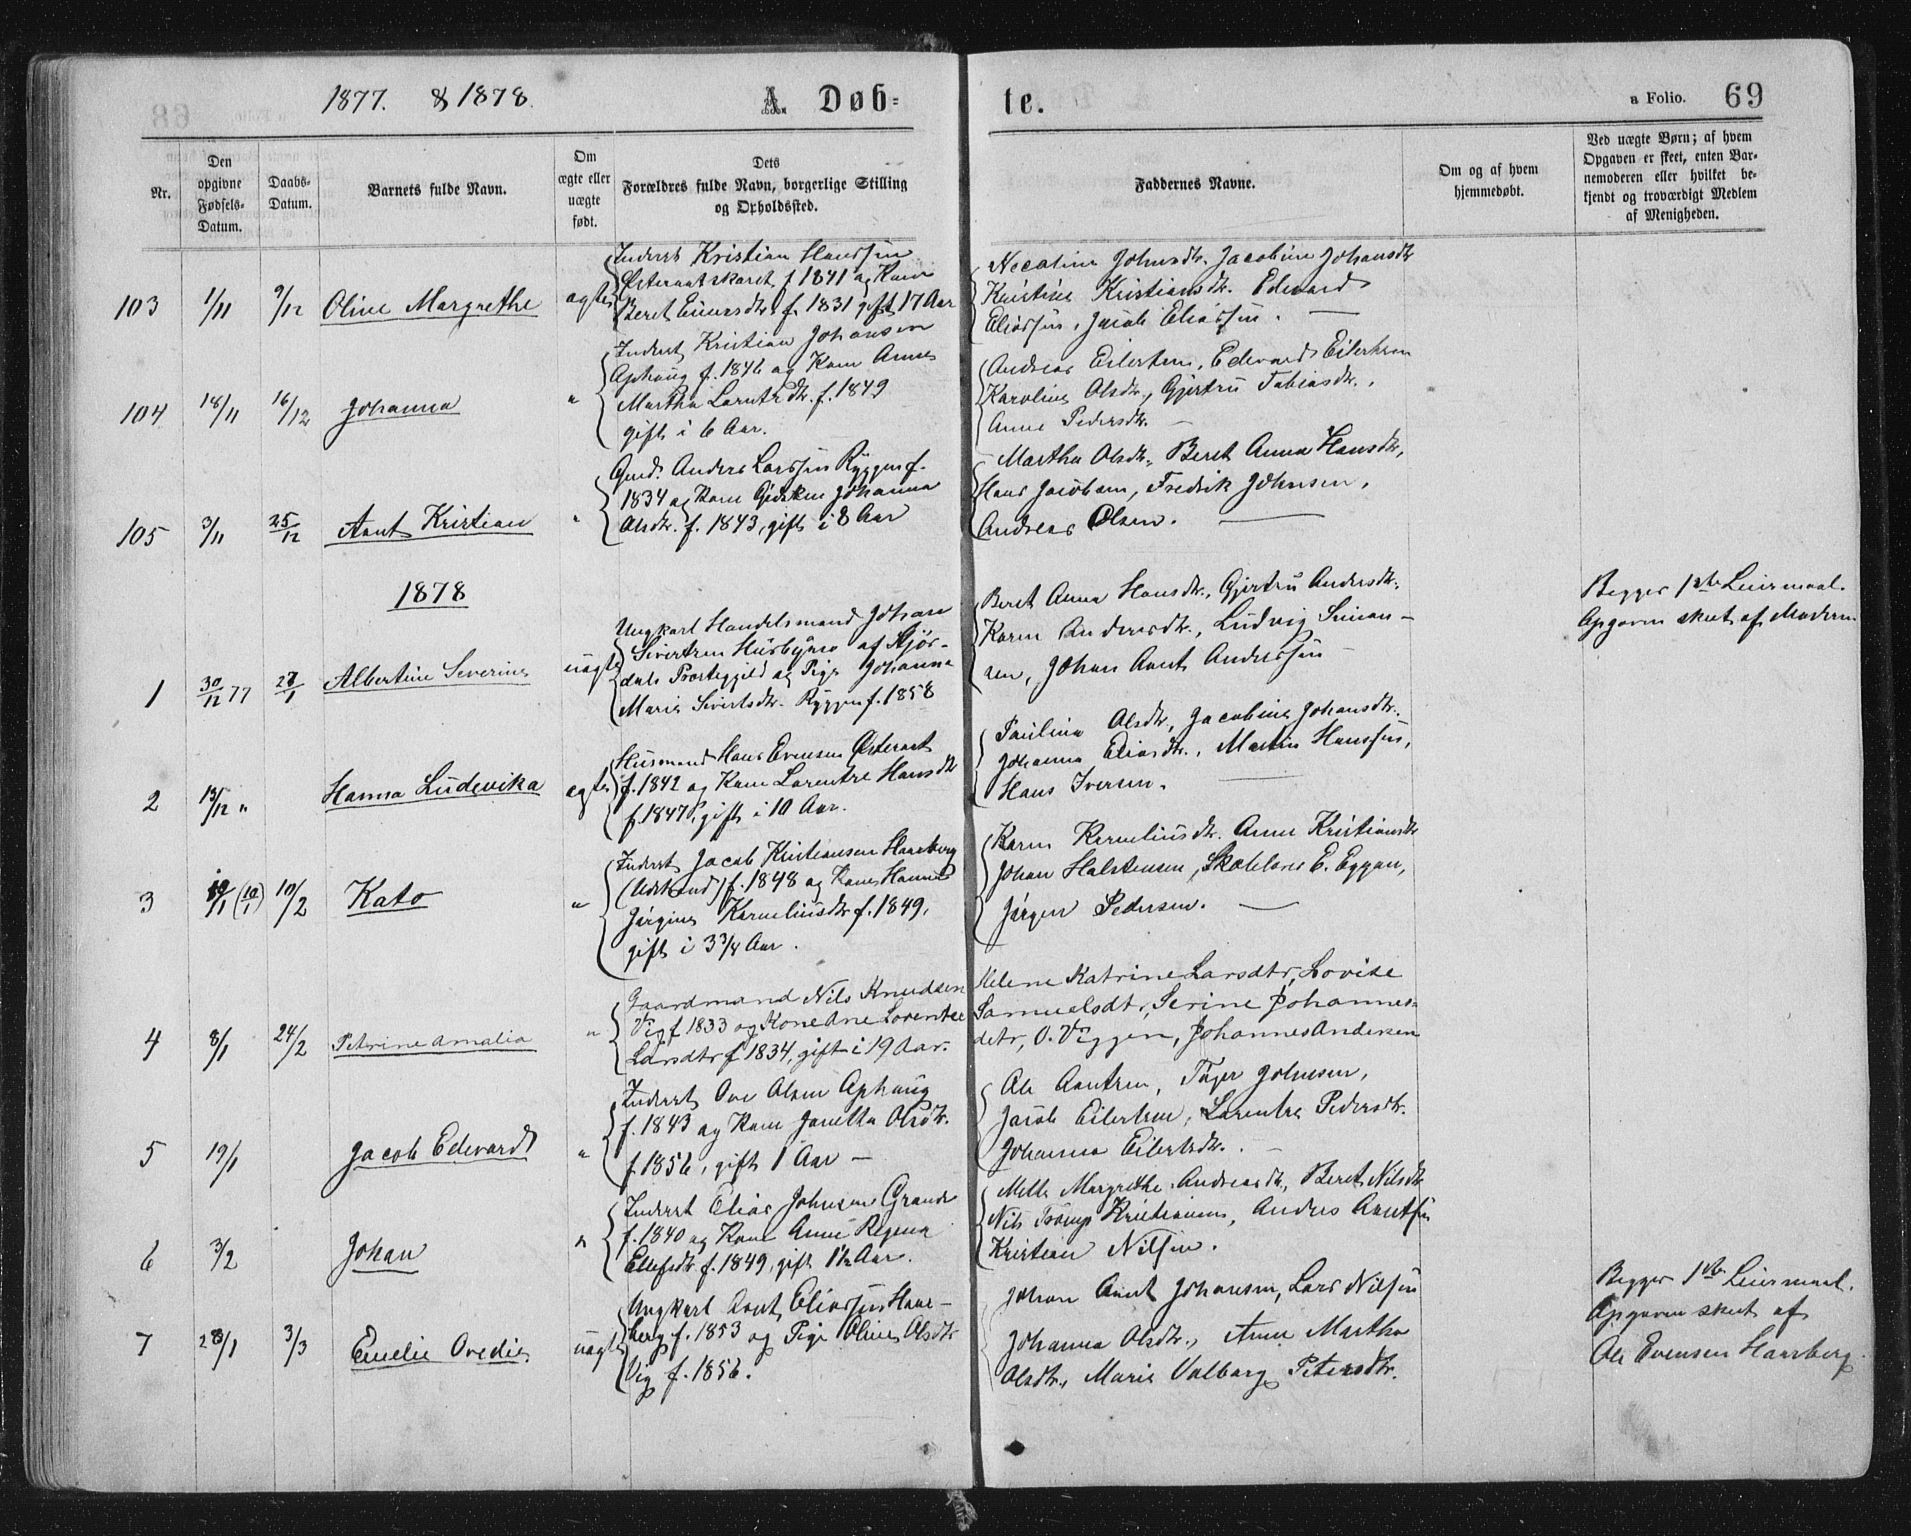 1877. & 1878.
A. Døb=
te.
a Folio. 69
Nr.
Den opgivne Fødsels-Datum.
Daabs-Datum.
Barnets fulde Navn.
Om ægte eller uægte født.
Dets Forældres fulde Navn, borgerlige Stilling og Opholdssted.
Faddernes Navne.
Om og af hvem hjemmedøbt.
Ved uægte Børn; af hvem Opgaven er skeet, enten Barnemoderen eller hvilket bekjendt og troværdigt Medlem af Menigheden.
103 1/11 9/12 Oline Margrethe ægte
Inderst Kristian Hanssen
f. 1841 og Kone
Beret f. 1831 gift 17 Aar
Johnsdtr. Jacobine Johansdtr
Kristine Kristiansdtr. Edevard
Eliassen, Jacob Eliassen.
104 18/11 16/12 Johanna "
Inderst Kristian Johansen
Aphaug f. 1846 og Kone Anne
Martha Larntsdtr. f. 1849
gift i 6 Aar.
Andreas Eilertsen, Edevard Eilertsen
Karoline Olsdtr., Gjertru Tobiasdtr.,
Anne Pedersdtr.
105 3/11 25/12 Arnt Kristian "
Gmd. Anders Larssen Ryggen f.
1834 og Kone Gjdsken Johanna
Olsdtr. f. 1843, gift i 8 Aar
Martha Olsdtr., Beret Anna Hansdtr,
Hans Jacobsen, Fredrik Johnsen,
Andreas Olsen.
1878
1 30/12 77 27/1 Albertine Severine uægte
Ungkarl Handelsmand Johan
Sivertsen Husbymo af Stjør-
dals Præstegjeld og Pige Johanna
Marie Sivertsdtr. Ryggen f. 1858
Beret Anna Hansdtr., Gjertru Andersdtr.
Karen Andersdtr., Ludvig Simon-
sen, Johan Arnt Anderssen
Begges 1ste Leiermaal.
Opgaven skeet af Moderen
2 13/12 " Hanna Ludevika ægte
Husmand Hans Evensen Østeraat
f. 1842 og Kone Larentse Hansdtr
f. 1847, gift i 10 Aar.
Paulina Olsdtr., Jacobine Johansdtr.
Johanna Eliasdtr., Martin Hanssen,
Hans Iversen.
3 19/1 (10/1) 10/2 Kato "
Inderst Jacob Kristiansen Haarberg
f. 1848 og Kone Hanna
Jørgine Korneliusdtr f. 1849,
gift i 3 3/4 Aar.
Karen Korneliusdtr. Anne Kristiansdtr
Johan Halstensen, Skolelærer E. Eggan,
Jørgen Pedersen.
4 8/1 24/2 Petrine Amalia "
Gaardmand Nils Knudsen
Vig f. 1833 og Kone Ane Lorentse
Larsdtr f 1834, gift i 19 Aar.
Helene Katrine Larsdtr, Lovise
Samuelsdt, Serine Johannes=
detr, O. Viggen, Johannes Andersen
5 19/1 Jacob Edevard "
Inderst Ove Olsen Aphaug
f. 1843 og Kone Janetta Olsdtr.
f. 1856, gift 1 Aar —
Ole Arntsen, Johnsen,
Jacob Eilertsen, Larentse Pedersdtr.
Johanna Eilertsdtr.
6 3/2 Johan "
Inderst Elias Johnsen Grande
f. 1840 og Kone Anne Regina
Ellefsdtr. f. 1849, gift 1 1/2 Aar.
Mette Margrethe Andreasdtr., Beret Nilsdtr
Nils Kristiansen, Anders Arntsen
Kristian Nilsen.
7 28/1 3/3 Emelie Ovedie uægte
Ungkarl Arnt Eliassen Haar-
berg f. 1853 og Pige Oline Olsdtr
Vig f. 1856.
Johan Arnt Johansen, Lars Nilsen
Johanna Olsdtr., Anne Martha
Olsdtr., Marie Valborg Petersdtr.
Begges 1ste Leiermaal.
Opgaven skeet af
Ole Evensen Haarberg.